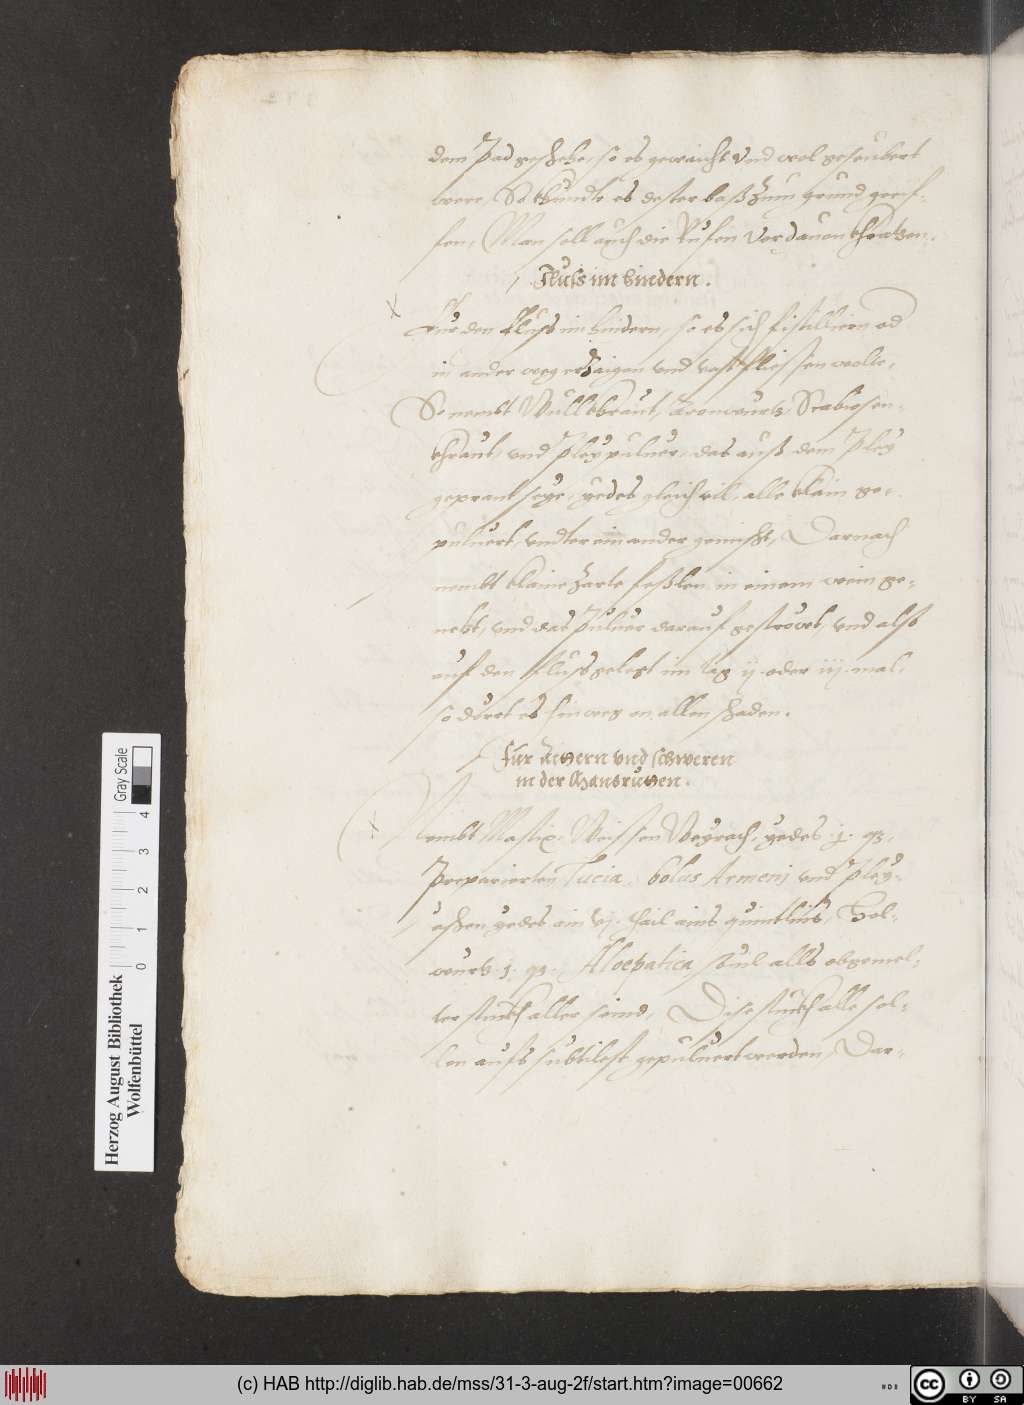 dem Pad geschehe, so es gewaicht vnd wol geseubert
were, So khundte es dester baß zum grund greif-
fen, Man soll auch die Rufen vor dauon khratzen.
Fluss im hindern.
Für den Fluss im hindern, so es sich fistuliern od
in ander weg erzaigen vnd vast fliessen wolte,
So nembt Wullkhraut, Aronwurtz, Scabiosen-
khraut, vnd Pley puluer, das auß dem Pley
geprant seye, yedes gleich vil, alle klain ge-
puluert, vndter einander gemischt, Darnach
nembt klaine zarte feßlen in einem wein ge-
netzt, vnd das Puluer darauf gestrowet, vnd also
auf den Fluss gelegt im tag ij. oder iij. mal,
so dorret es hinweg on allen schaden.
Für Aissern vnd schweren
in der Mansruten.
Nembt Mastix, Weissen Weyrach, yedes .1. q3.
Preparierten Tucia, bolus Armenj vnd Pley-
aschen yedes ein vj. thail ains quintlins, Hol-
wurtz .1. q3. Aloepatica souil alls obgemel-
ter stuckh aller seind, Dise stuckh alle sol-
len aufs subtilest gepuluert werden, Dar-
Herzog August Bibliothek
Wolfenbüttel
0 1 2 3 4
Gray Scale
(c) HAB http://diglib.hab.de/mss/31-3-aug-2f/start.htm?image=00662
cc BY SA